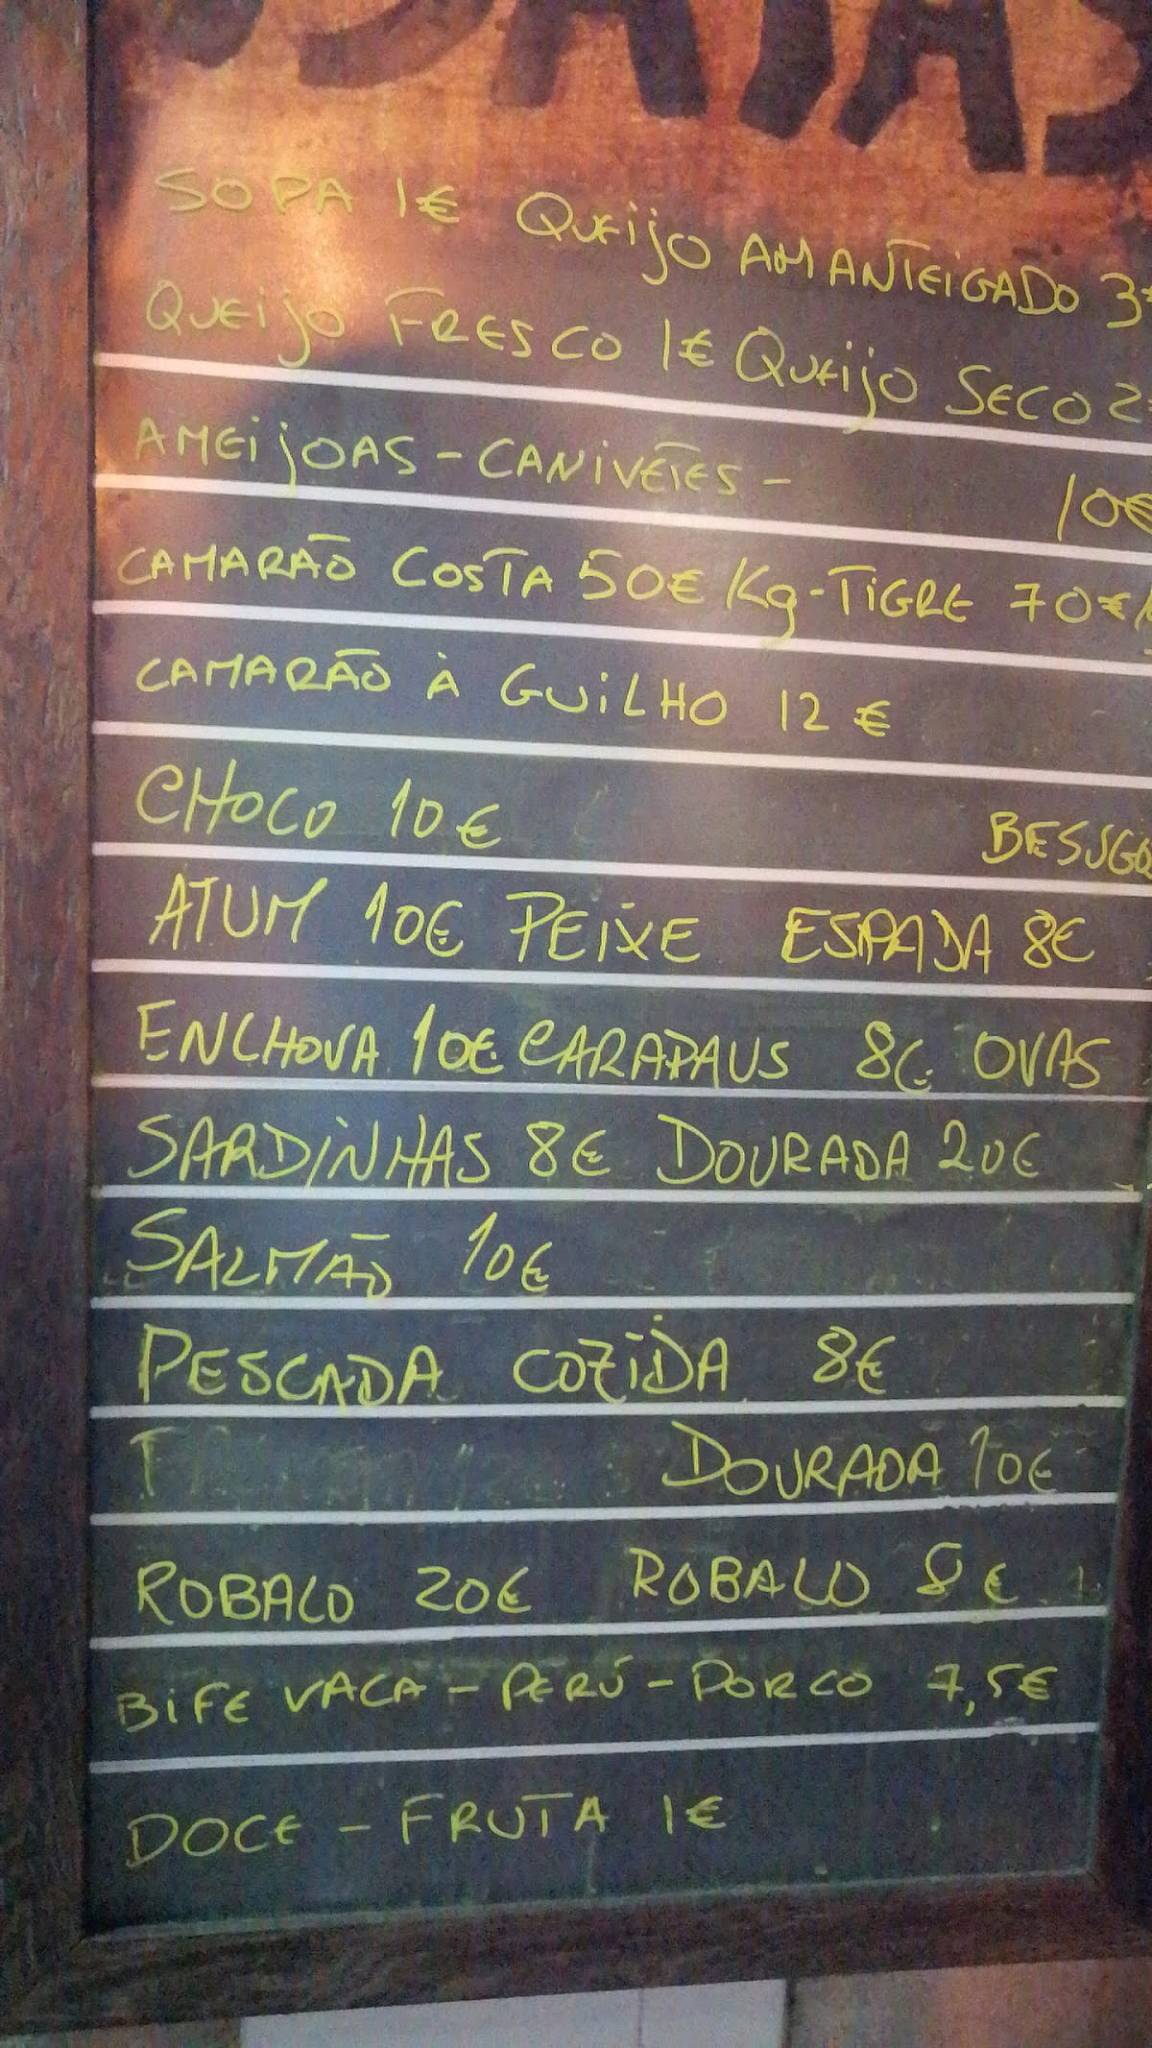 SOPA 1€ QUEIJO AMANTEIGADO 3
QUEIJO FRESCO 1€ QUEIJO SECO 2
AMEIJOAS - CANIVETES - 10€
CAMARÃO COSTA 50€/Kg - TIGRE 70€/
CAMARÃO À GUILHO 12 €
CHOCO 10€ BESUGO
ATUM 10€ PEIXE ESPADA 8€
ENCHOVA 10€ CARAPAUS 8€ OVAS
SARDINHAS 8€ DOURADA 20€
SALMÃO 10€
PESCADA COZIDA 8€
DOURADA 10€
ROBALO 20€ ROBALO 8€
BIFE VACA - PERÚ - PORCO 7,5€
DOCE - FRUTA 1€